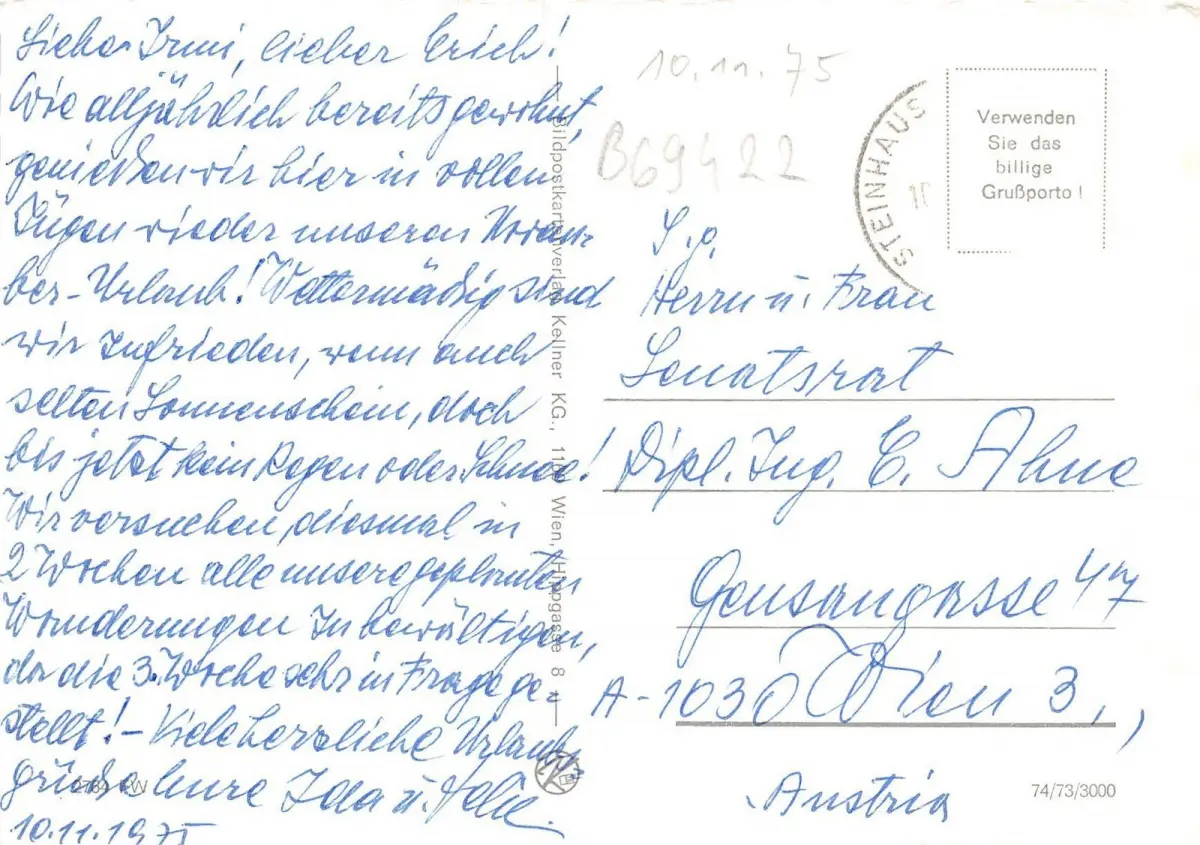 Liebe Irmi, lieber Erich!
Wie alljährlich bereits gewohnt,
genießen wir hier in vollen
Zügen wieder unseren Novem-
ber-Urlaub! Wettermäßig sind
wir zufrieden, wenn auch
selten Sonnenschein, doch
bis jetzt kein Regen oder Schnee!
Wir versuchen, diesmal in
2 Wochen alle unsere geplanten
Wanderungen zu bewältigen,
da die 3. Woche sehr in Frage ge-
stellt! – Viele herzliche Urlaubs-
grüße Eure Ida u.
10.11.1975
Bildpostkartenverlag Kellner KG., 11 Wien, Hippgasse 8
10.11.75
B69422
STEINHAUS
10
Verwenden
Sie das
billige
Grußporto!
S.g.
Herrn u. Frau
Senatsrat
Dipl. Ing. E. Ahne
Geusaugasse 47
A-1030 Wien 3.,
Austria
74/73/3000